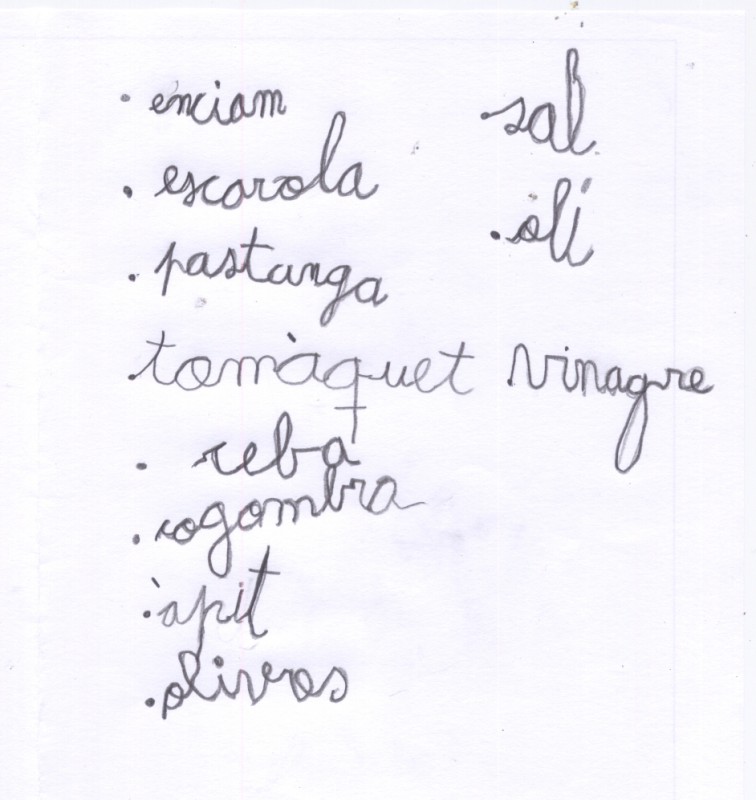 . enciam
. escarola
. pastanga
. tomàquet
. ceba
. cogombra
. àpit
. olivas
. sal
. oli
. vinagre